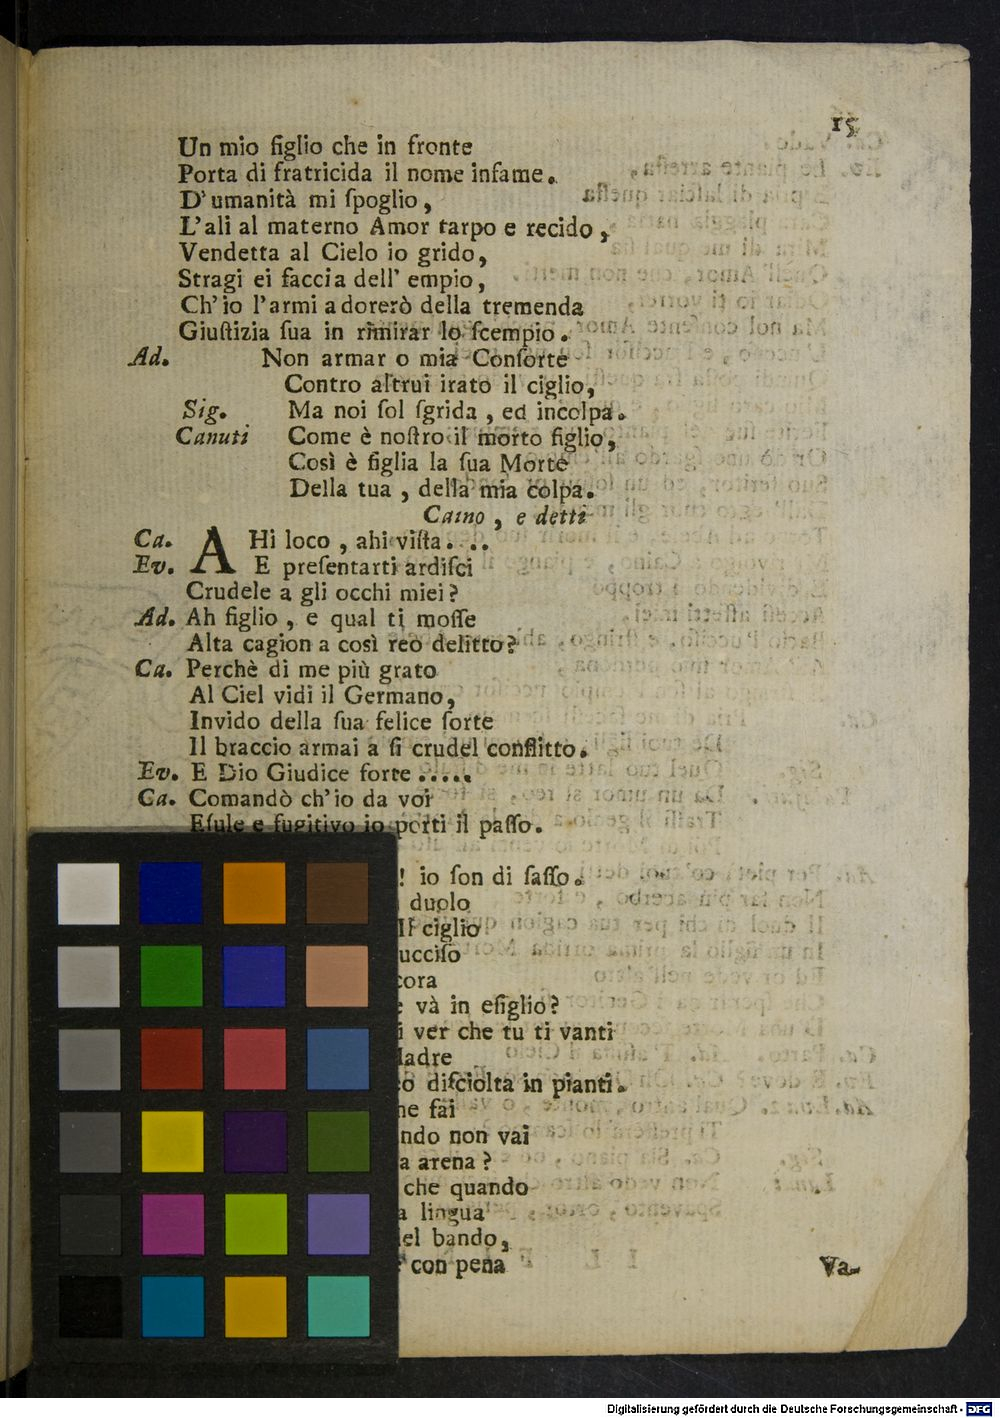 15
Un mio figlio che in fronte
Porta di fratricida il nome infame.
D'umanità mi ſpoglio,
L'ali al materno Amor tarpo e recido,
Vendetta al Cielo io grido,
Stragi ei faccia dell' empio,
Ch'io l'armi adorerò della tremenda
Giuſtizia ſua in rimirar lo ſcempio.
Ad. Non armar o mia Conſorte
Contro altrui irato il ciglio,
Sig. Ma noi ſol ſgrida, ed incolpa.
Canuti Come è noſtro il morto figlio,
Così è figlia la ſua Morte
Della tua, della mia colpa.
Caino, e detti
Ca. AHi loco, ahi viſta...
Ev. E preſentarti ardiſci
Crudele a gli occhi miei?
Ad. Ah figlio, e qual ti moſſe
Alta cagion a così reo delitto?
Ca. Perchè di me più grato
Al Ciel vidi il Germano,
Invido della ſua felice ſorte
Il braccio armai a ſi crudel conflitto.
Ev. E Dio Giudice forte.....
Ca. Comandò ch'io da voi
Eſule e fugitivo io porti il paſſo.
! io ſon di ſaſſo.
duolo
Il ciglio
ucciſo
cora
và in eſiglio?
i ver che tu ti vanti
Madre
diſciolta in pianti.
he fai
ndo non vai
a arena?
che quando
a lingua
el bando,
con pena
Va-
Digitalisierung gefördert durch die Deutsche Forschungsgemeinschaft - DFG